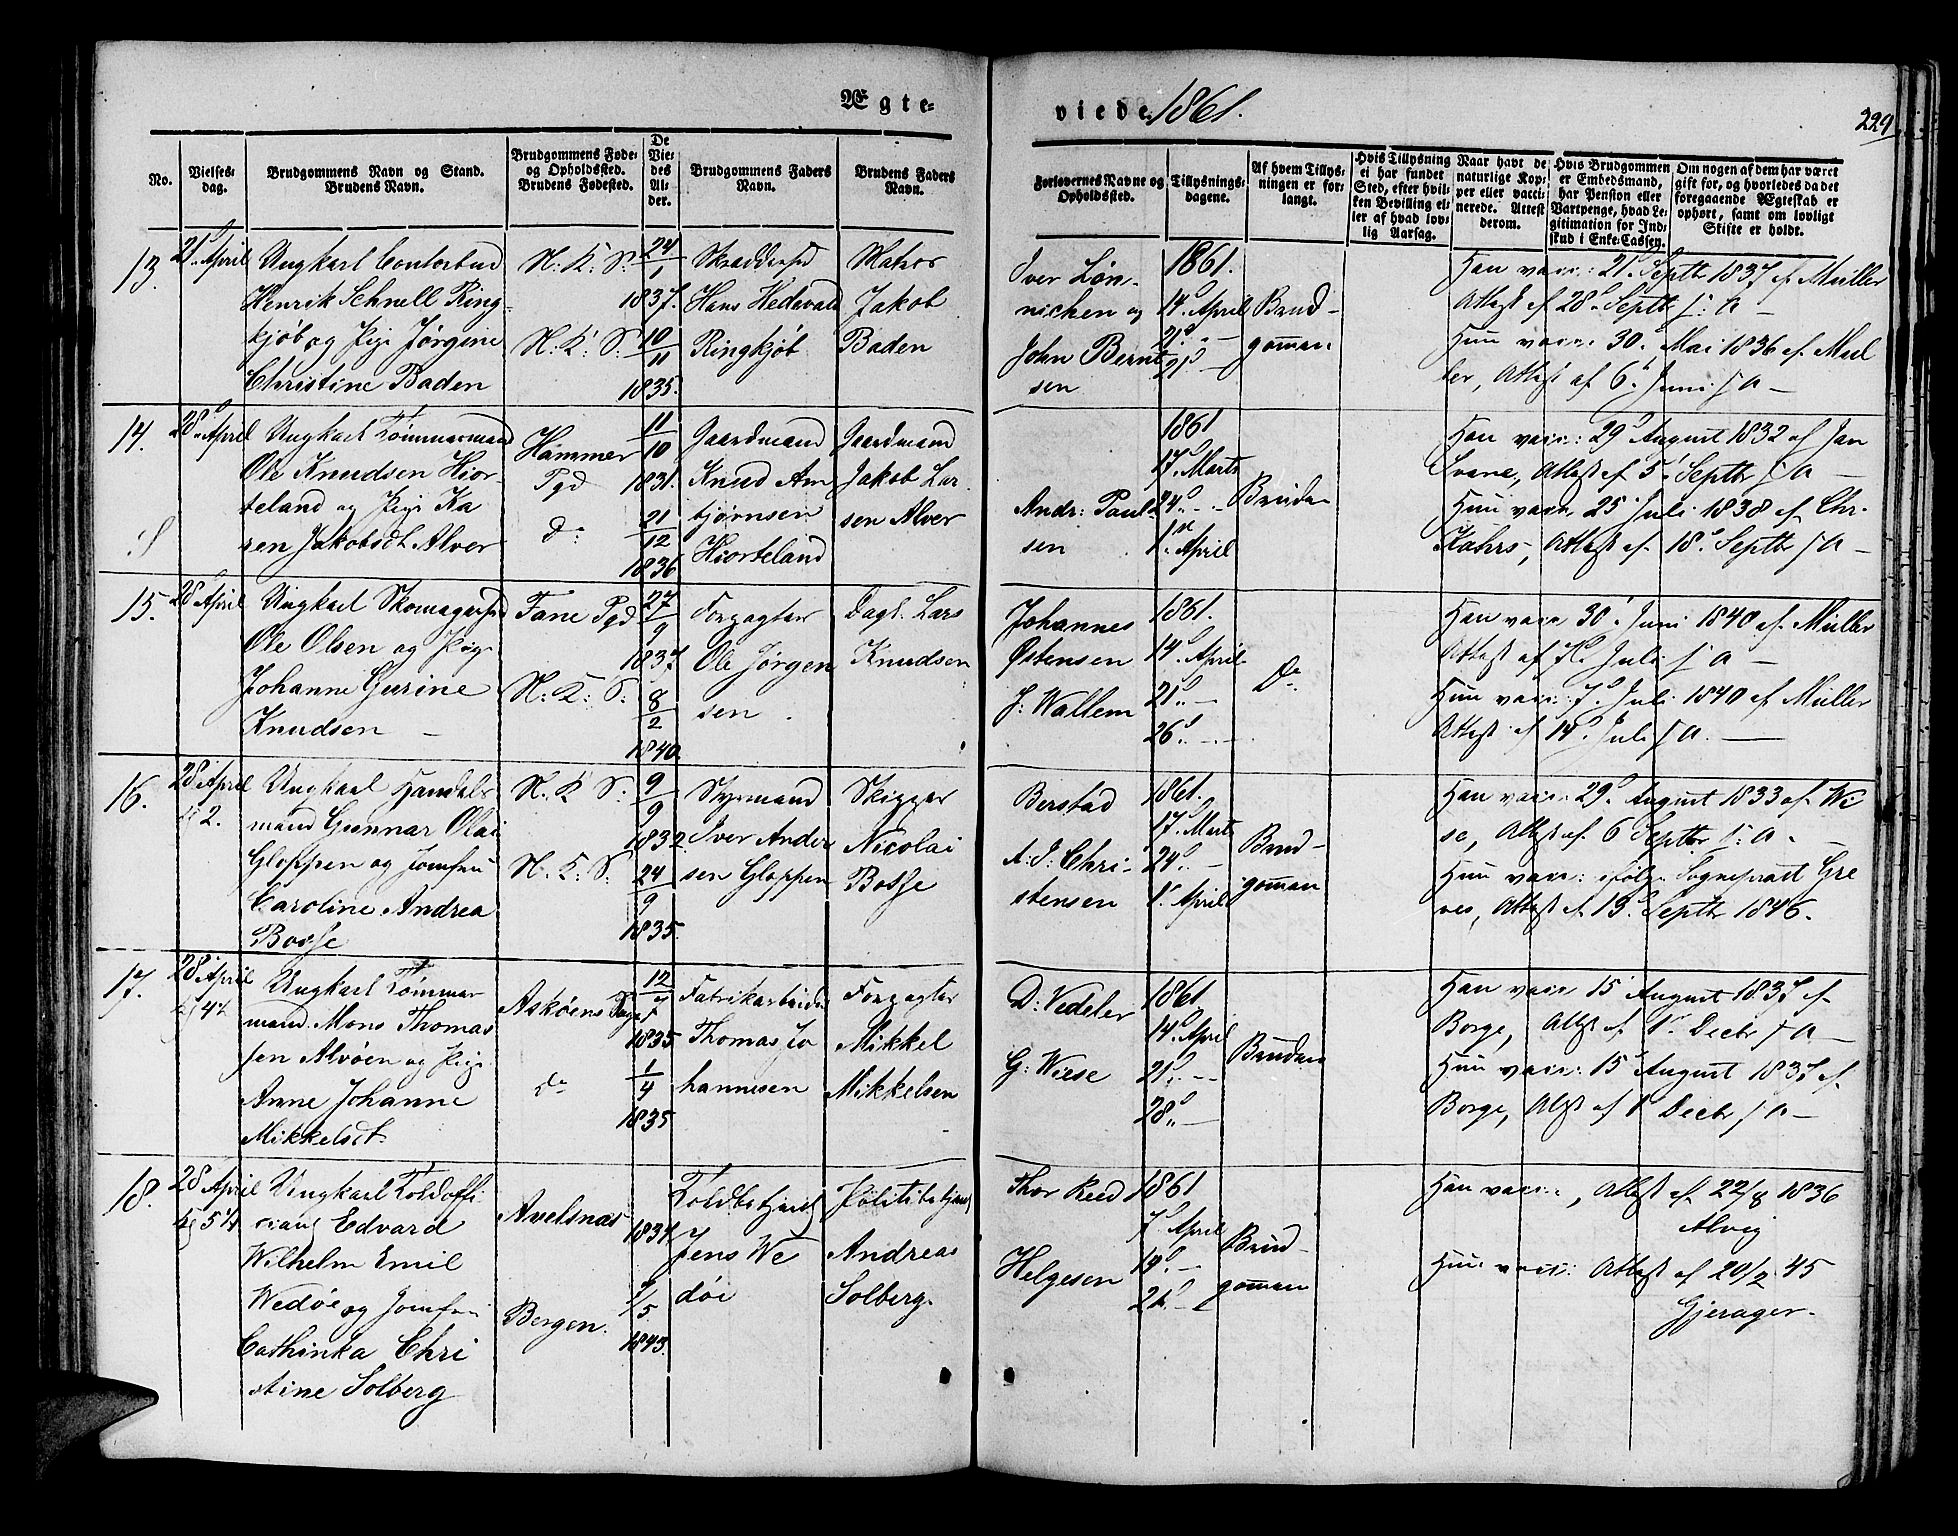 Ægte-
viede 1861.
229
No.
Vielses-
dag.
Brudgommens Navn og Stand.
Brudens Navn.
Brudgommens Føde-
og Opholdssted.
Brudens Fødested.
De
Vie-
des
Al-
der.
Brudgommens Faders
Navn.
Brudens Faders
Navn.
Forlovernes Navne og
Opholdssted.
Tillysnings-
dagene.
Af hvem Tillys-
ningen er for-
langt.
Hvis Tillysning
ei har fundet
Sted, efter hvil-
ken Bevilling el-
ler af hvad lov-
lig Aarsag.
Naar havt de
naturlige Kop-
per eller vacci-
nerede. Attest
derom.
Hvis Brudgommen
er Embedsmand,
har Pension eller
Vartpenge, hvad Le-
gitimation for Ind-
skud i Enke-Cassen.
Om nogen af dem har været
gift før, og hvorledes da det
foregaaende Ægteskab er
ophørt, samt om lovligt
Skifte er holdt.
13.
21d April
Ungkarl Contorbud
Henrik Schnell Ring-
kjøb og Pige Jørgine
Christine Baden
N: K: S:
N: K: S:
24/1
1837.
10/11
1835.
Skræddersvd
Hans Hedevald
Ringkjøb
Matros
Jakob
Baden
Iver Løn-
nichen og
John Bernt
sen
1861.
14d April
21d —
21d —
Brud-
gommen
Han vacc: 21d Septbr 1837 af Müller
Attest af 28d Septbr s: a —
Hun vacc: 30. Mai 1836 af Mül
ler, Attest af 6' Juni s a —
14.
28d April
Ungkarl Tømmermand
Ole Knudsen Hior-
teland og Pige Ka
ren Jakobsdt. Alver
Hammer
Pgd
do
11/10
1831.
21/12
1836
Gaardmand
Knud Am
bjørnsen
Hiorteland
Gaardmand
Jakob Lar-
sen Alver
Andr: Paul-
sen
1861
17d Marts
24d - -
1st April
Bruden
Han vacc: 29d August 1832 af Jan
Svane, Attest af 5' Septbr s a —
Hun vacc: 25' Juli 1838 af Chr.
Kahrs, Attest af 18d Septbr s a —
15.
28 April
Ungkarl Skomagersvd
Ole Olsen og Pige
Johanne Gurine
Knudsen —
Fane Pgd
N: K: S:
27/9
1837.
8/2
1840.
Forpagter
Ole Jørgen
sen
Dagl. Lars
Knudsen
Johannes
Østensen
J: Wallem
1861.
14d April
21d —
26d. - -
Do
Han vacc: 30' Juni 1840 af Müller
Attest af 7d Juli s a —
Hun vacc: 7d Juli 1840 af Müller
Attest af 14d Juli s a. —
16.
28 April
kl 2.
Ungkarl Handels
mand Gunnar Olai
Gloppen og Jomfru
Caroline Andrea
Bosse
N. K. S:
N: K: S:
9/9
1832.
24/9
1835.
Styrmand
Iver Ander
sen Gloppen
Skipper
Nicolai
Bosse
Berstad
A: J: Chri-
stensen
1861.
17d Marts
24d —
1' April
Brud-
gommen
Han vacc: 29d August 1833 af Wi
se, Attest af 6' Septbr s: a -
Hun vacc: ifølge Sognepræst Gre
ves, Attest af 19d Septbr 1846.
17.
28 April
kl 4½
Ungkarl Tømmer
mand Mons Thomas
sen Alvøen og Pige
Anne Johanne
Mikkelsdt.
Askøens Pgd
do
12/7
1835
1/4
1835
Fabrikarbeider
Thomas Jo
hannesen
Forpagter
Mikkel
Mikkelsen
D: Vedeler
G: Wiese
1861
14d April
21d. - -
28d. —
Bruden
Han vacc 15' August 1837 af
Borge, Attest af 1' Decbr s a —
Hun vacc: 15' August 1837 af
Borge, Attest af 1' Decbr s a —
18.
28 April
kl 5¼
Ungkarl Toldoffi-
ciant Edvard
Wilhelm Emil
Wedøe og Jomfru
Cathinka Chri
stine Solberg
Avelsnæs
Bergen.
1834
/5
1843.
Toldbetjent
Jens We
døe
Politibetjent
Andreas
Solberg.
Thor Reed
Helgesen
1861
7d April
19d —
21d. —
Brud-
gommen
Han vacc: , Attest af 22/8 1836
Alvig
Hun vacc: Attest af 20/2 45
Gjerager.